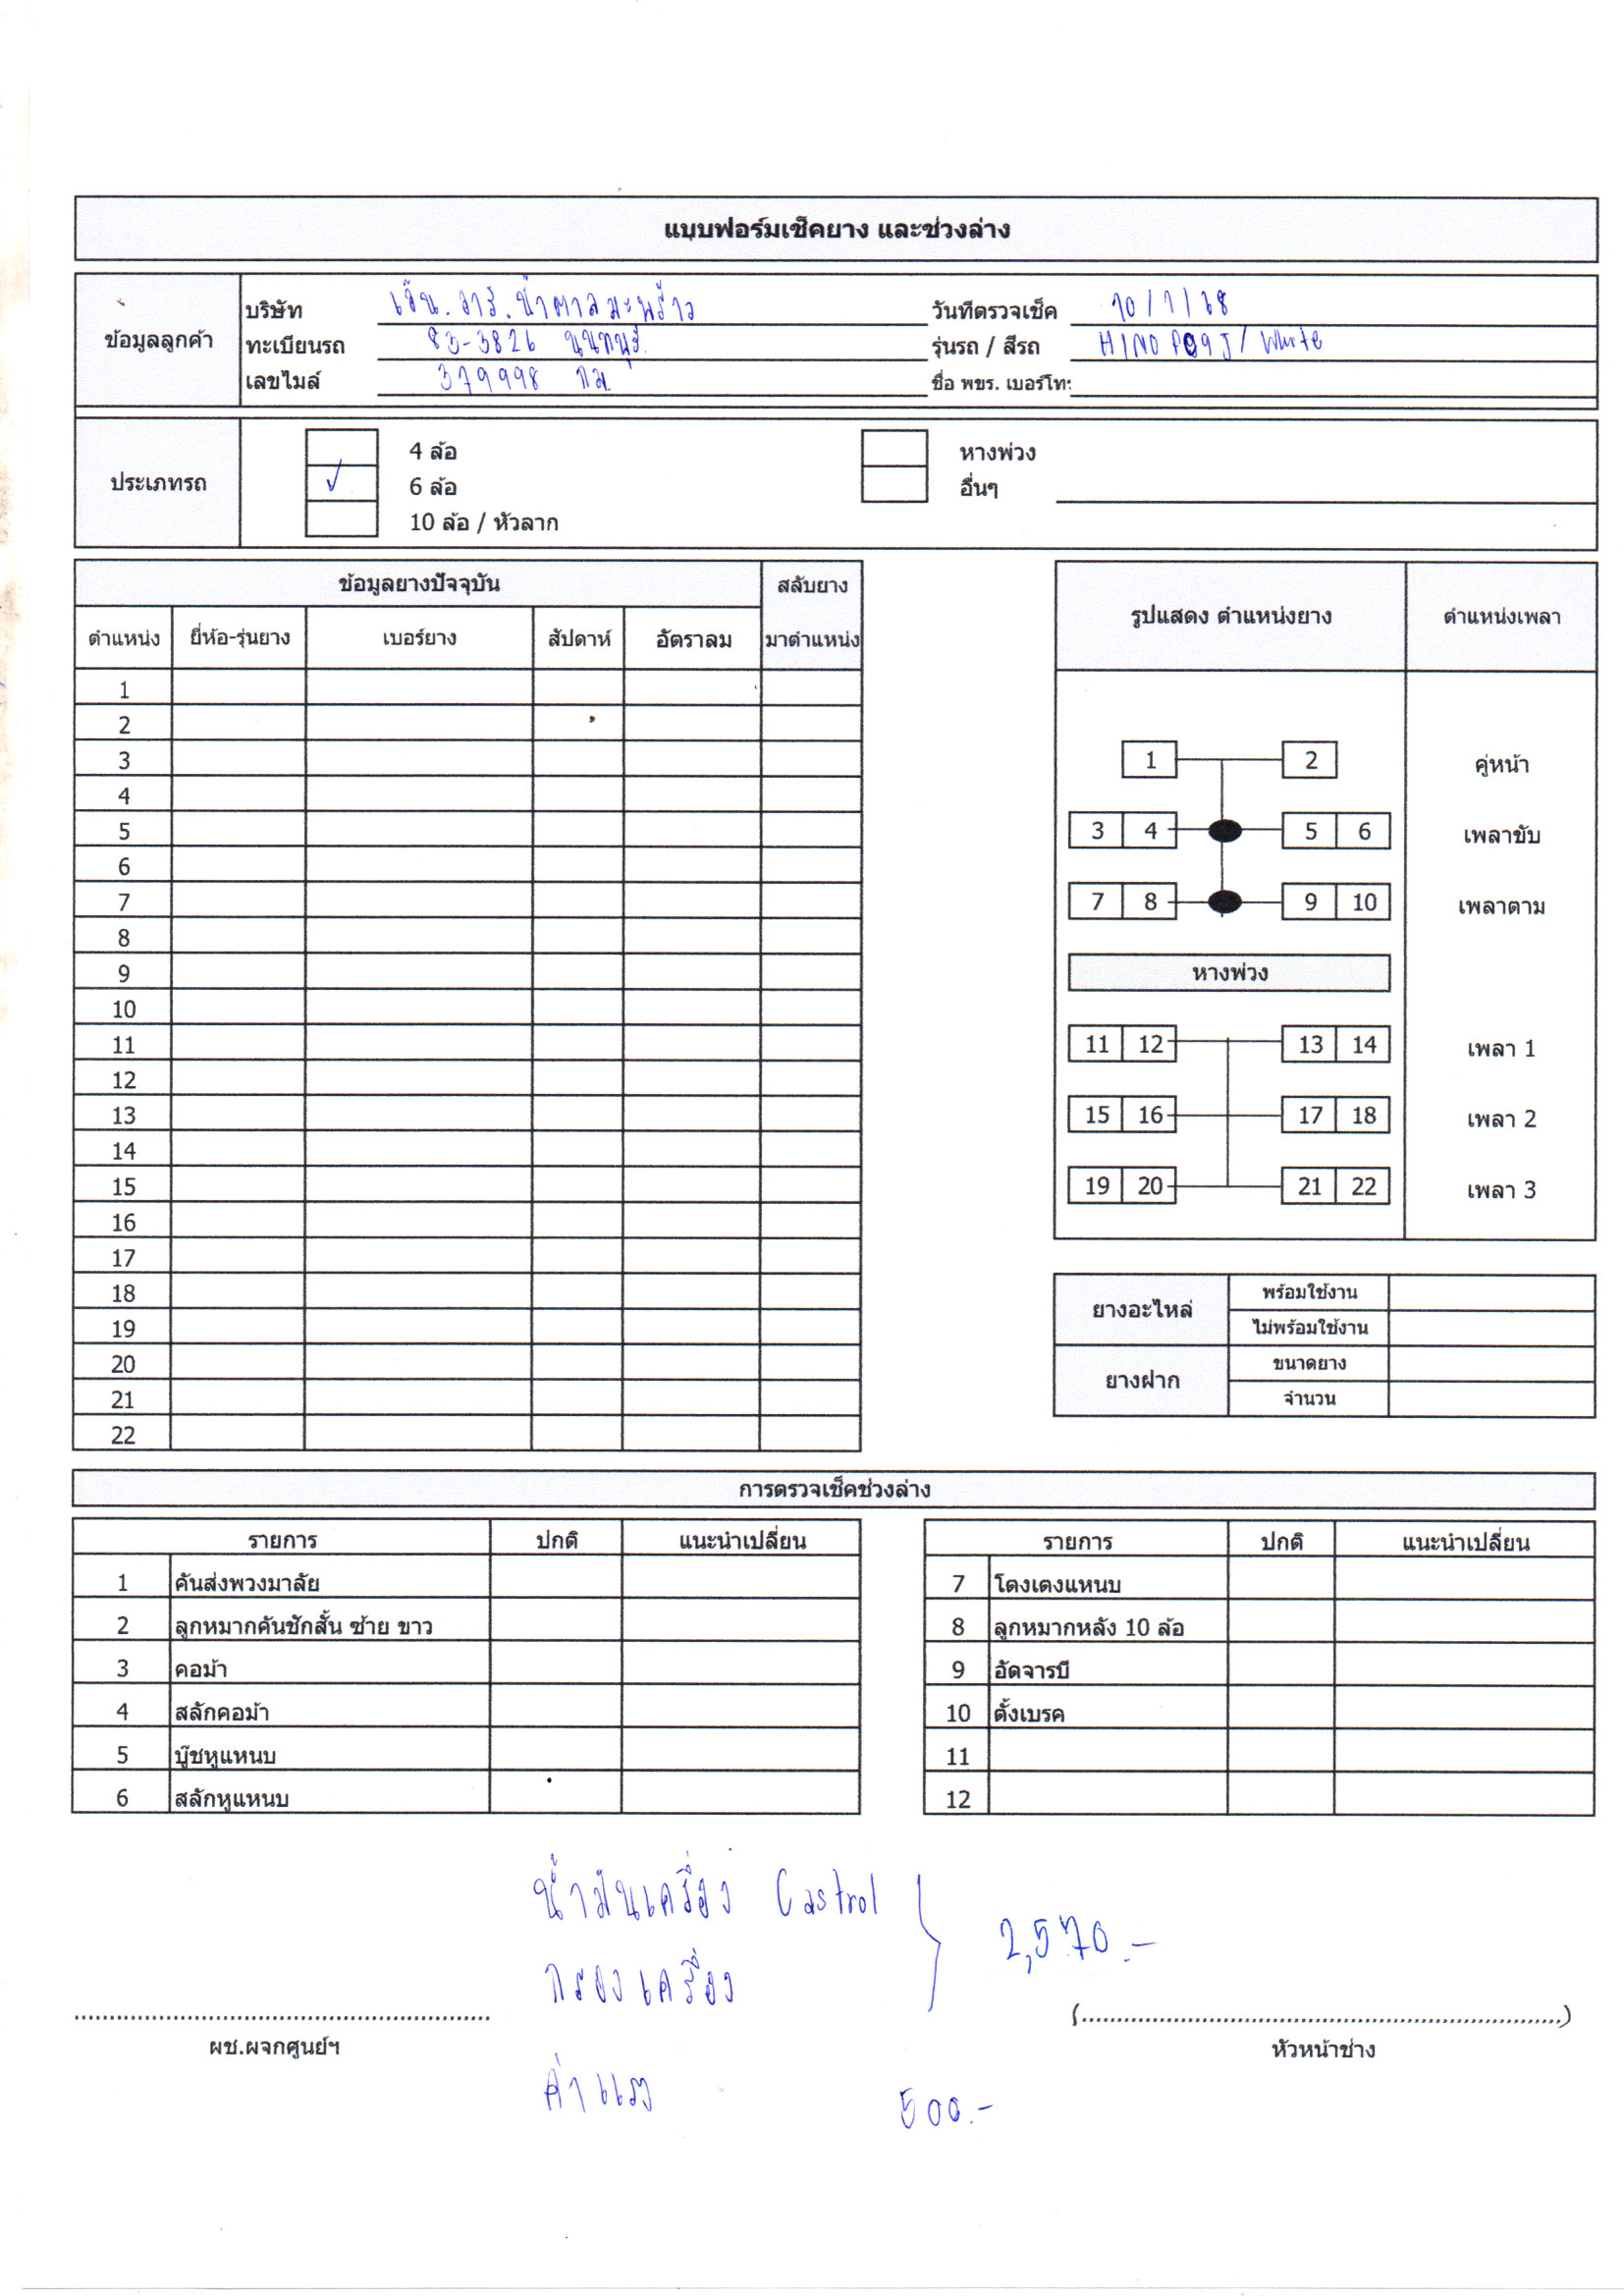 แบบฟอร์มเช็คยาง และช่วงล่าง
ข้อมูลลูกค้า
บริษัท เอ็น.อาร์.น้ำตาลมะพร้าว วันที่ตรวจเช็ค 10/1/68
ทะเบียนรถ 83-3826 นนทบุรี รุ่นรถ / สีรถ HINO / White
เลขไมล์ 379998 กม. ชื่อ พขร. เบอร์โทร
ประเภทรถ
4 ล้อ หางพ่วง
✓ 6 ล้อ อื่นๆ
10 ล้อ / หัวลาก
ข้อมูลยางปัจจุบัน สลับยาง
ตำแหน่ง ยี่ห้อ-รุ่นยาง เบอร์ยาง สัปดาห์ อัตราลม มาตำแหน่ง
1
2
3
4
5
6
7
8
9
10
11
12
13
14
15
16
17
18
19
20
21
22
รูปแสดง ตำแหน่งยาง ตำแหน่งเพลา
1 2 คู่หน้า
3 4 5 6 เพลาขับ
7 8 9 10 เพลาตาม
หางพ่วง
11 12 13 14 เพลา 1
15 16 17 18 เพลา 2
19 20 21 22 เพลา 3
ยางอะไหล่ พร้อมใช้งาน
ไม่พร้อมใช้งาน
ยางฝาก ขนาดยาง
จำนวน
การตรวจเช็คช่วงล่าง
รายการ ปกติ แนะนำเปลี่ยน
1 คันส่งพวงมาลัย
2 ลูกหมากคันชักสั้น ซ้าย ขาว
3 คอม้า
4 สลักคอม้า
5 บู๊ชหูแหนบ
6 สลักหูแหนบ
รายการ ปกติ แนะนำเปลี่ยน
7 โตงเตงแหนบ
8 ลูกหมากหลัง 10 ล้อ
9 อัดจารบี
10 ตั้งเบรค
11
12
น้ำมันเครื่อง Castrol
กรองเครื่อง 2,570.-
ค่าแรง 500.-
ผช.ผจกศูนย์ฯ
(..............................................................)
หัวหน้าช่าง